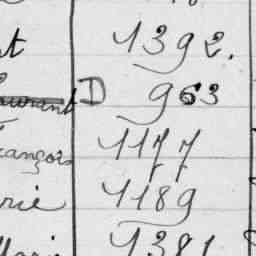 t 1392.
Laurent D 963
François 1177
rie 1189
Marie 1381